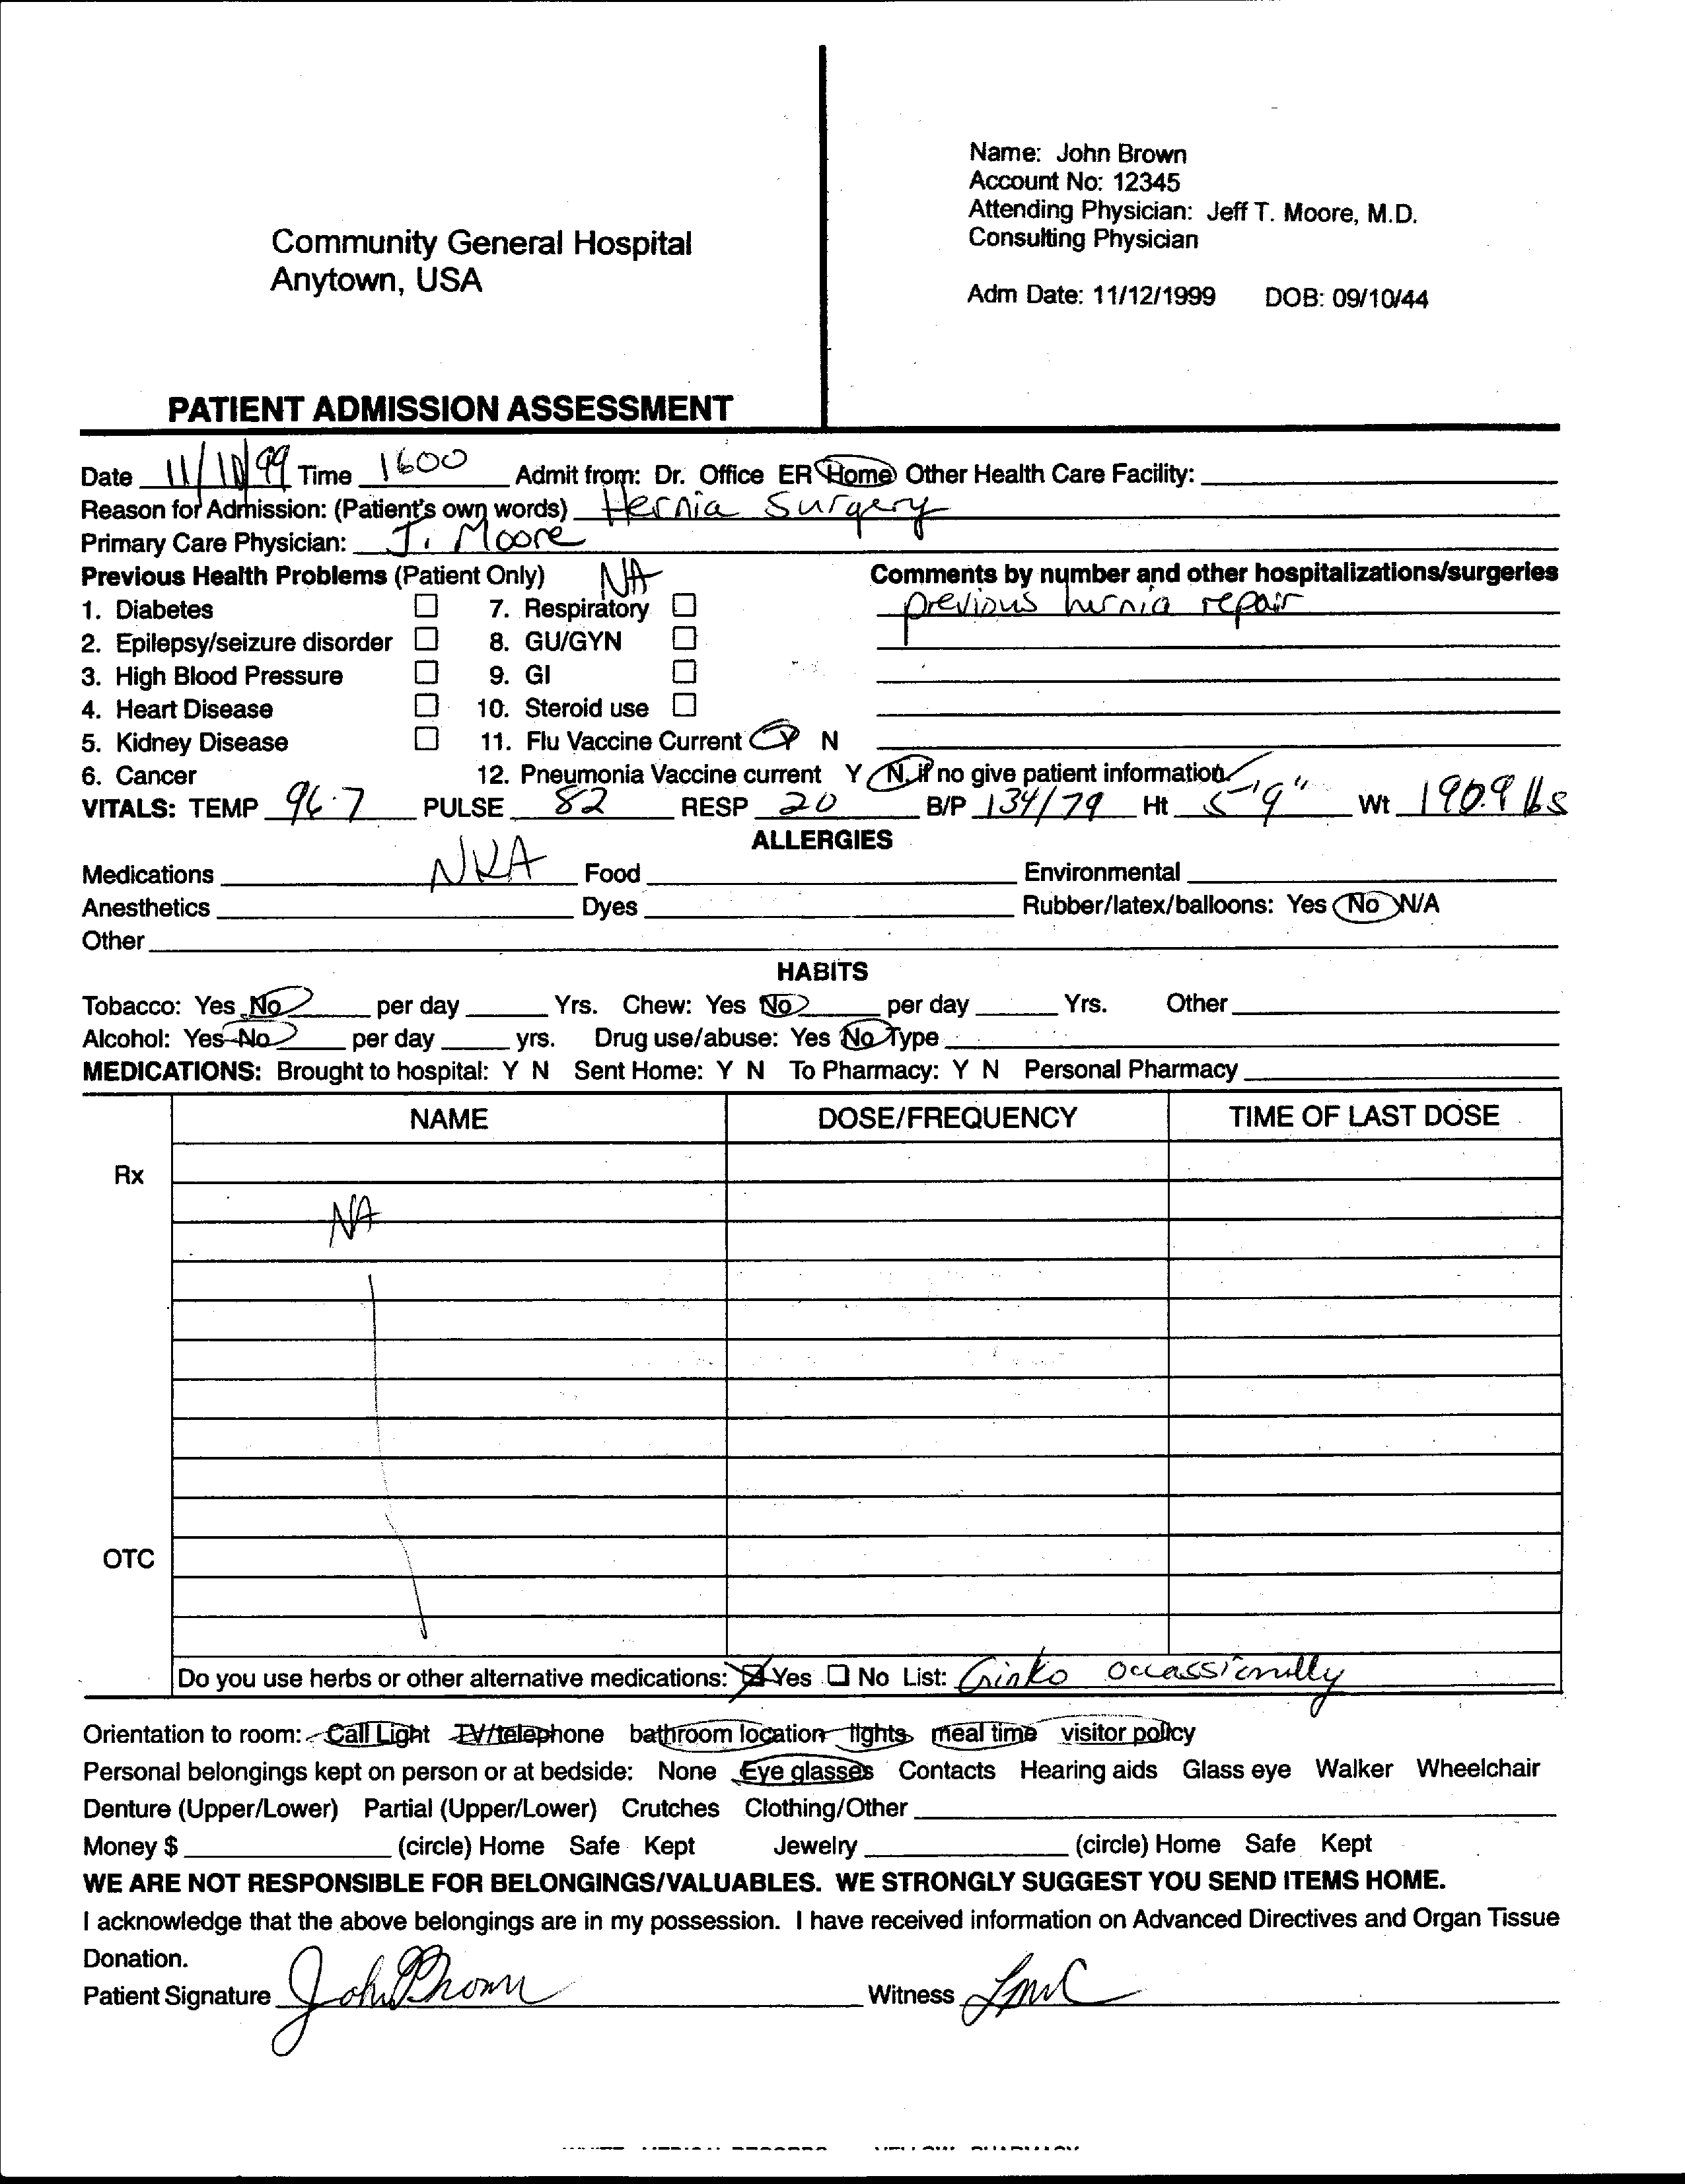 Name: John Brown
Account No: 12345
Attending Physician: Jeff T. Moore, M.D.
Consulting Physician
Community General Hospital
Anytown, USA
Adm Date: 11/12/1999 DOB: 09/10/44
PATIENT ADMISSION ASSESSMENT
Date 11/ /99 Time 1600 Admit from: Dr. Office ER Home Other Health Care Facility:
Reason for Admission: (Patient's own words) Hernia Surgery
Primary Care Physician: J. Moore
Previous Health Problems (Patient Only) NA Comments by number and other hospitalizations/surgeries
1. Diabetes ☐ 7. Respiratory ☐ previous hernia repair
2. Epilepsy/seizure disorder ☐ 8. GU/GYN ☐
3. High Blood Pressure ☐ 9. GI ☐
4. Heart Disease ☐ 10. Steroid use ☐
5. Kidney Disease ☐ 11. Flu Vaccine Current Y N
6. Cancer 12. Pneumonia Vaccine current Y N, if no give patient information ✓
VITALS: TEMP 96.7 PULSE 82 RESP 20 B/P 134/79 Ht 5'9" Wt 190.9 lbs
ALLERGIES
Medications NKA Food Environmental
Anesthetics Dyes Rubber/latex/balloons: Yes No N/A
Other
HABITS
Tobacco: Yes No per day Yrs. Chew: Yes No per day Yrs. Other
Alcohol: Yes No per day yrs. Drug use/abuse: Yes No Type
MEDICATIONS: Brought to hospital: Y N Sent Home: Y N To Pharmacy: Y N Personal Pharmacy
NAME DOSE/FREQUENCY TIME OF LAST DOSE
Rx
NA
OTC
Do you use herbs or other alternative medications: ☒ Yes ☐ No List: Ginko occassionally
Orientation to room: Call Light TV/telephone bathroom location lights meal time visitor policy
Personal belongings kept on person or at bedside: None Eye glasses Contacts Hearing aids Glass eye Walker Wheelchair
Denture (Upper/Lower) Partial (Upper/Lower) Crutches Clothing/Other
Money $ (circle) Home Safe Kept Jewelry (circle) Home Safe Kept
WE ARE NOT RESPONSIBLE FOR BELONGINGS/VALUABLES. WE STRONGLY SUGGEST YOU SEND ITEMS HOME.
I acknowledge that the above belongings are in my possession. I have received information on Advanced Directives and Organ Tissue
Donation.
Patient Signature John Brown Witness